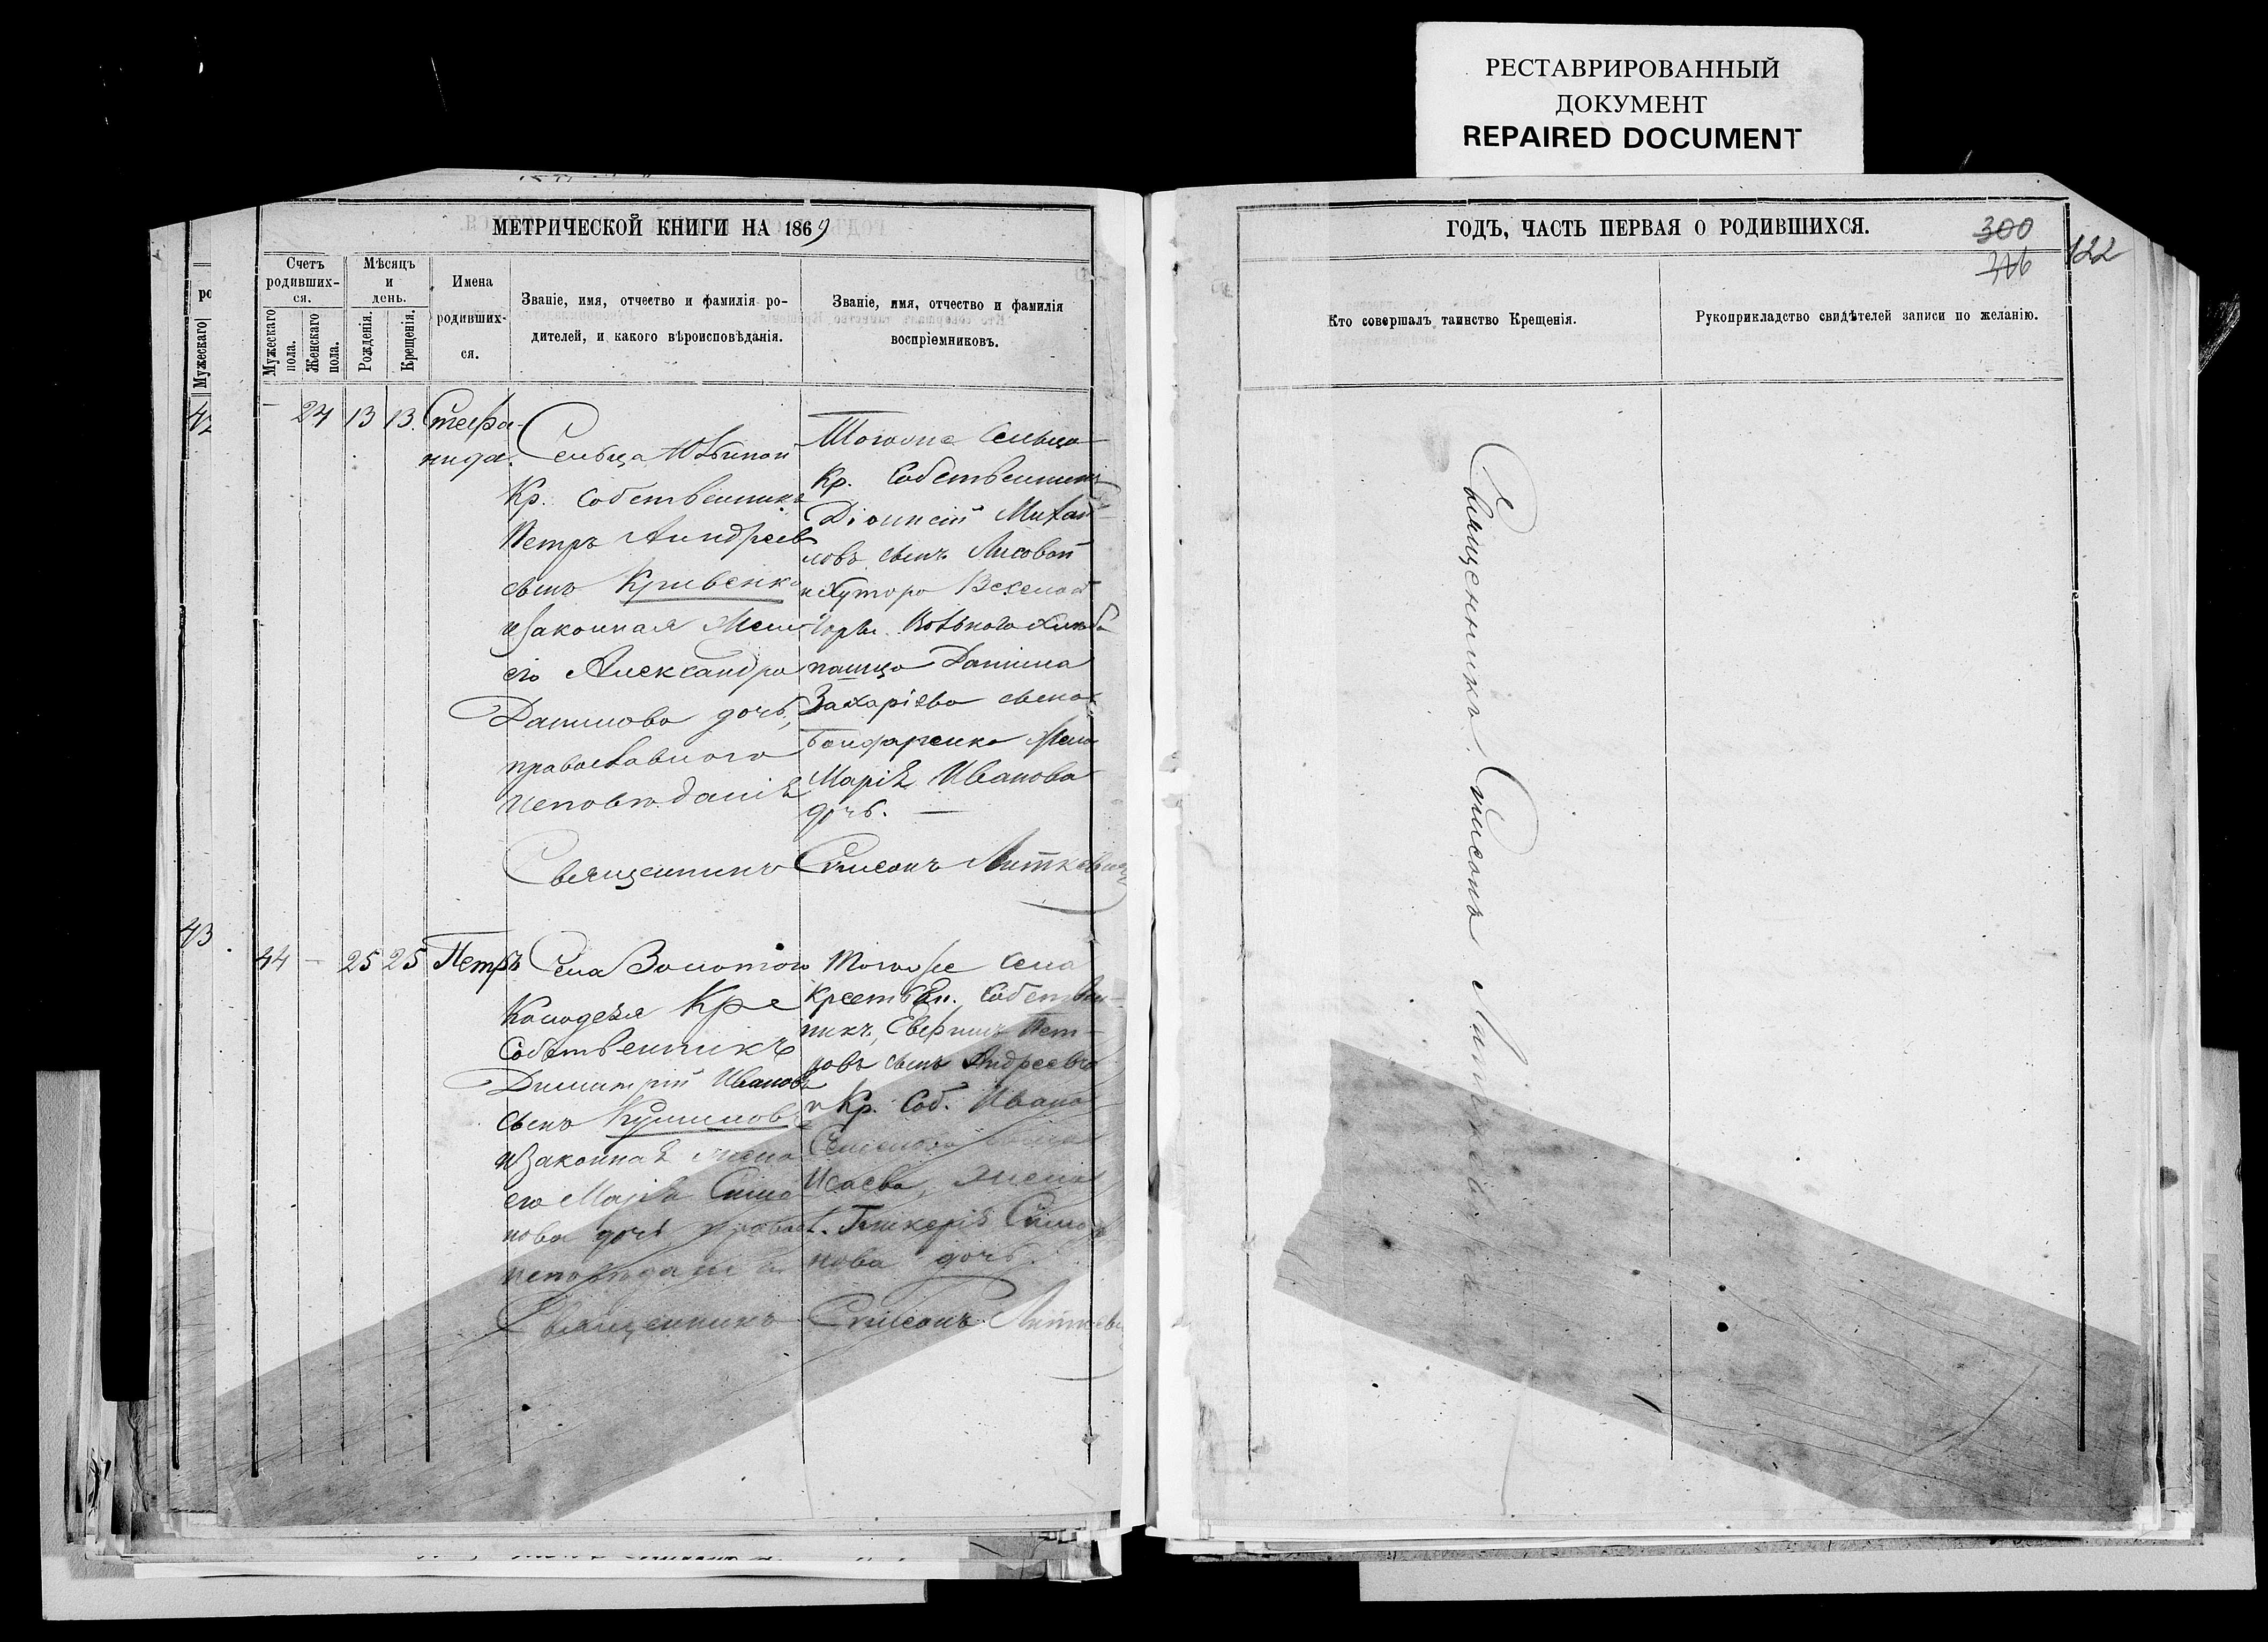 РЕСТАВРИРОВАННЫЙ
ДОКУМЕНТ
REPAIRED DOCUMENT
МЕТРИЧЕСКОЙ КНИГИ НА 1869
Счетъ
родивших-
ся.
Мужескаго
пола.
Женскаго
пола.
Мѣсяцъ
и
день.
Рожденія.
Крещенія.
Имена
родивших-
ся.
Званіе, имя, отчество и фамилія ро-
дителей, и какого вѣроисповѣданія.
Званіе, имя, отчество и фамилія
воспріемниковъ.
ро
Мужескаго
42
— 24 13 13. Стефа-
нида.
Сельца
Кр. Собственникъ
Петръ Андреевъ
сынъ Кривенко
и законная жена
его Александра
Данилова дочь,
православнаго
исповѣданія
Тогоже сельца
Кр. Собственникъ
Діонисій Михай-
ловъ сынъ Лисовой
и хутора
Горы. Вольнаго хлѣбо
пашца Данила
Захаріева сына
Бондаренко жена
Марія Иванова
дочь. —
Священникъ Симеонъ
43
44 — 25 25 Петръ
Села Золотого
Колодезя Кре
Собственникъ
Димитрій Ивановъ
сынъ
и законная жена
его Марія Симо
нова дочь правосл.
исповѣданія
Тогоже села
Крестьян. Собствен-
никъ, Пет-
ровъ сынъ Андреевъ
и Кр. Соб. Ивана
сына
Исаева, жена
Гликерія Симо
нова дочь.
Священникъ Симеонъ
ГОДЪ, ЧАСТЬ ПЕРВАЯ О РОДИВШИХСЯ.
300
122
Кто совершалъ таинство Крещенія.
Рукоприкладство свидѣтелей записи по желанію.
Священникъ Симеонъ